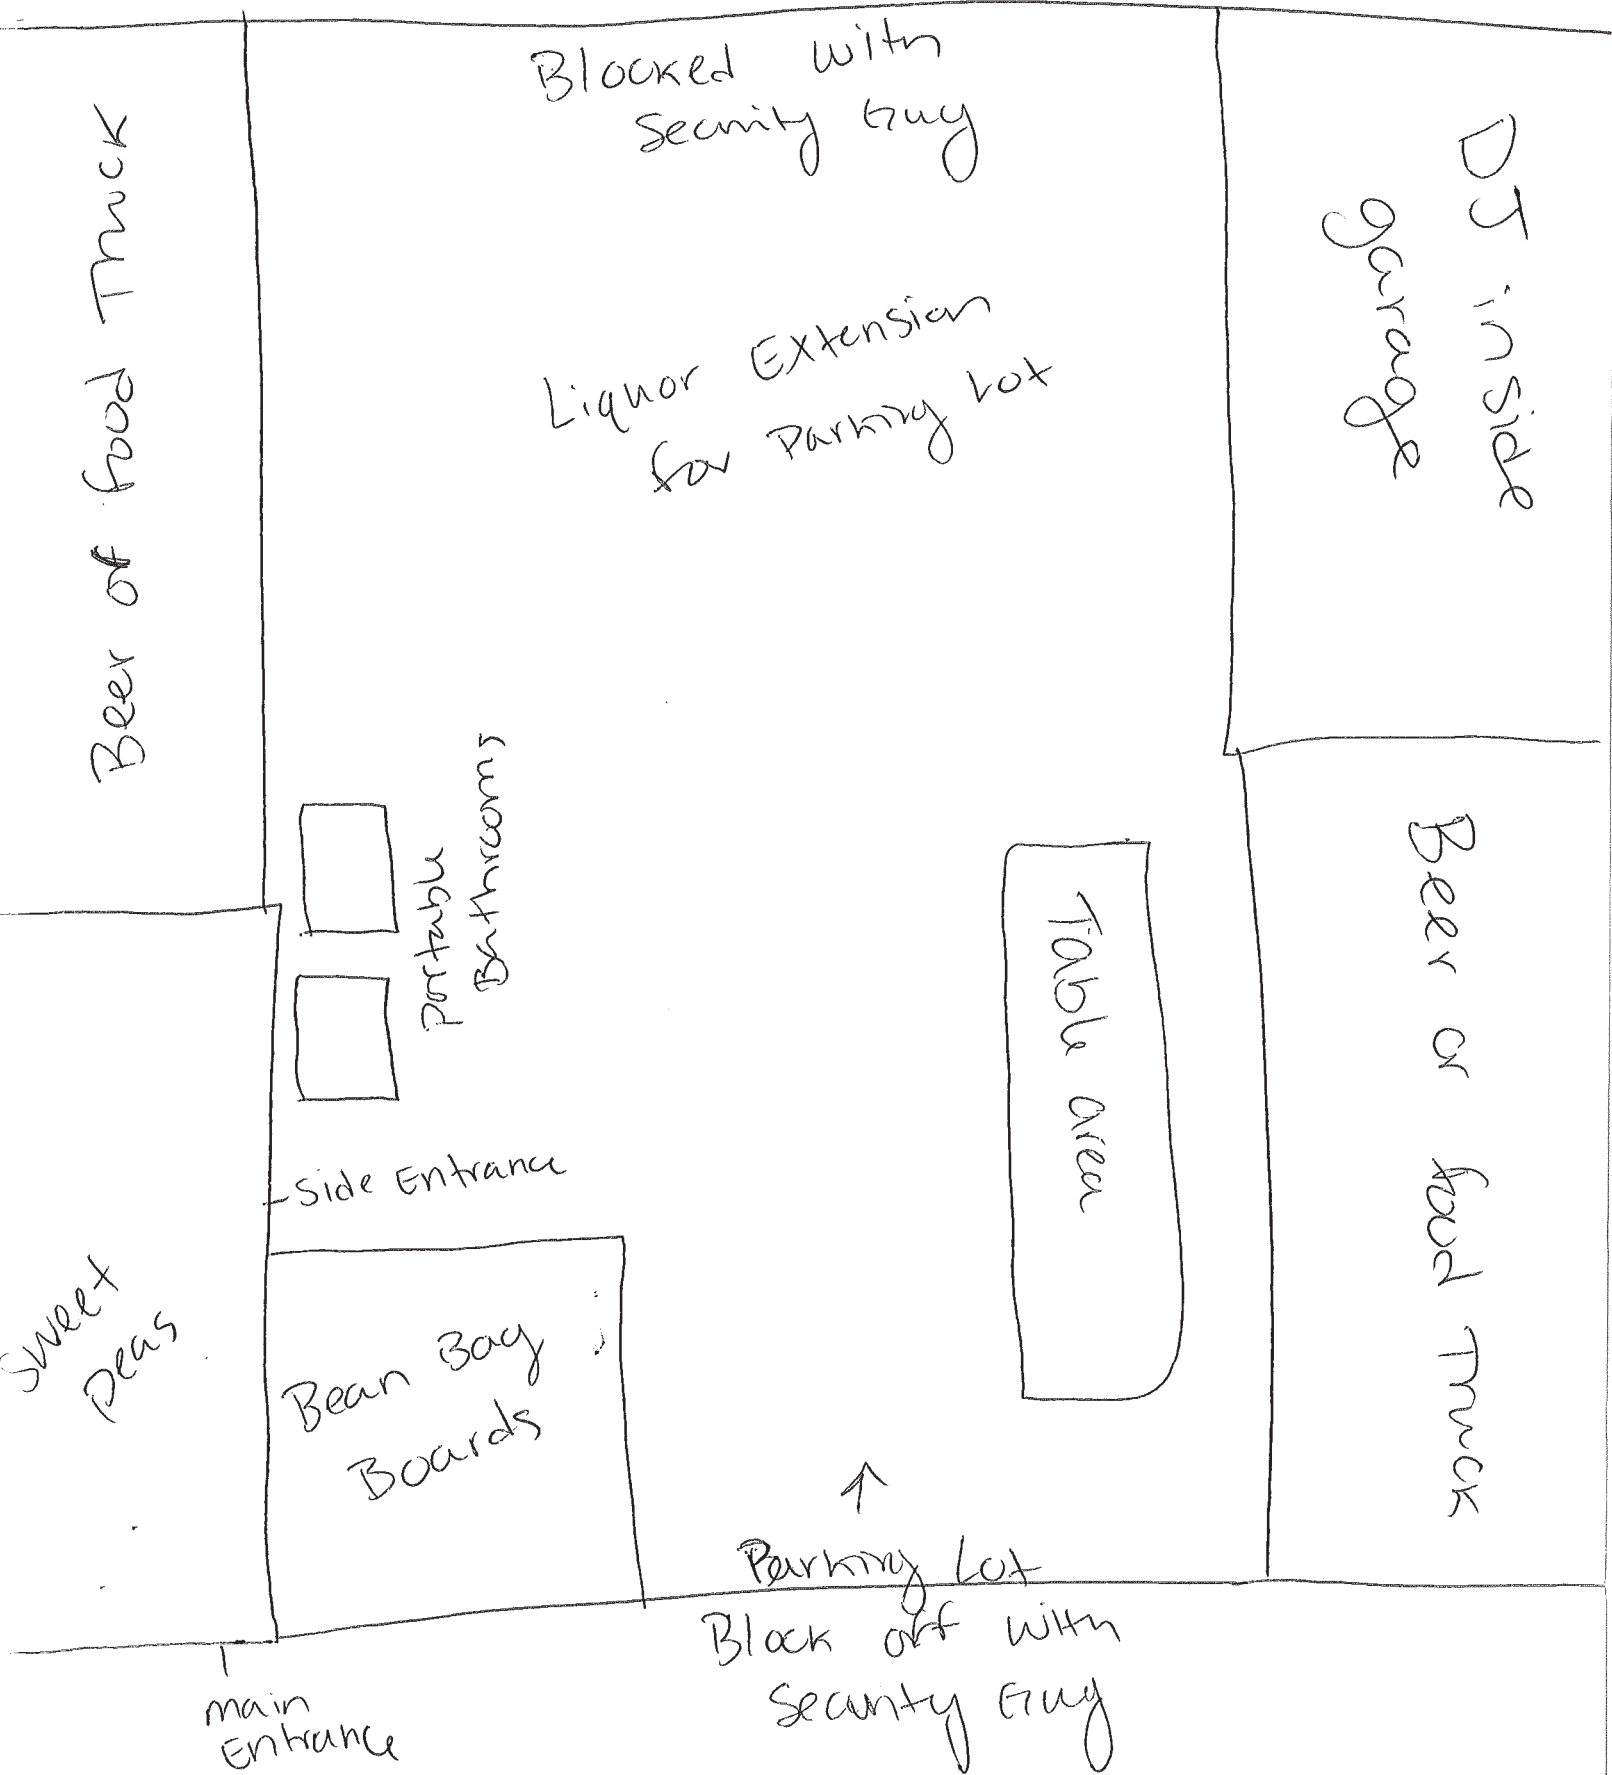 Blocked with
Security Guy
Beer or food Truck
DJ inside
garage
Liquor Extension
for Parking Lot
Portable
Bathrooms
Table area
Beer or food Truck
Side Entrance
Sweet
peas
Bean Bag
Boards
Parking Lot
Block off with
Security Guy
main
Entrance